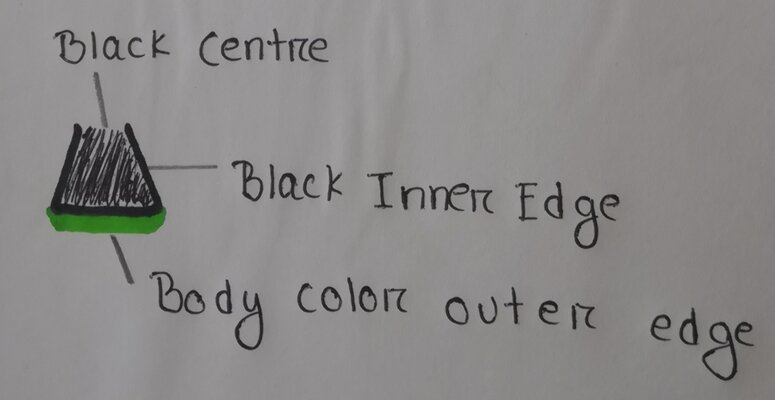 Black Centre
Black Inner Edge
Body color outer edge